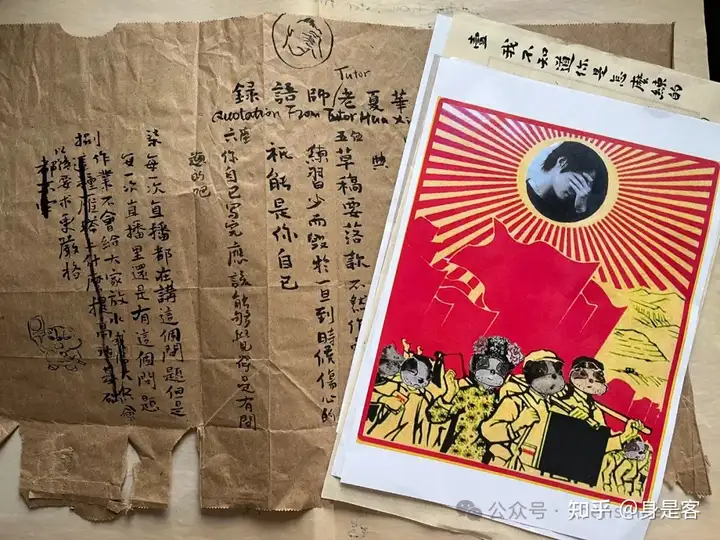 壹 我不知道你是怎麼練的
Tutor
華夏老師語録
Quotation From Tutor Hua Xi
五
草稿要落款不然作
練習少而毀於一旦到時候傷心的
祇能是你自己
六
你自己寫完應該能夠 你是有問
題的吧
柒每一次直播都在講這個問題但是
每一次直播里還是有這個問題
捌作業不會給大家放水
以後要求更嚴格
公众号 ·
知乎 @身是客